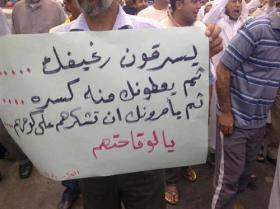 يسرقون رغيفك .....
ثم يعطونك منه كسره ....
ثم يامرونك ان تشكرهم على كرمهم
يالوقاحتهم